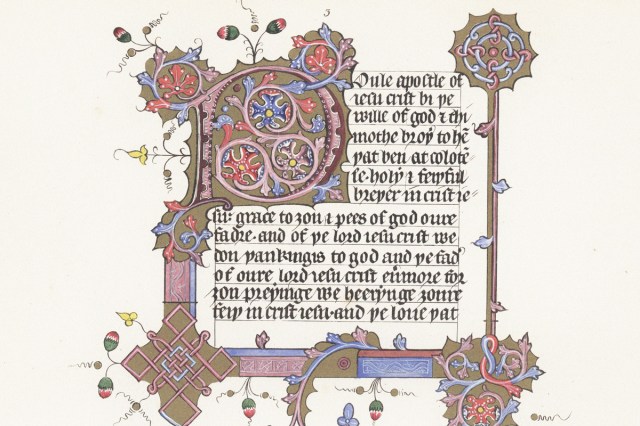 3
Poule apostle of
iesu crist bi ye
wille of god & thi
mothe broy' to hē
yat ben at colose=
se·holy & feyful
breyer in crist ie=
su· grace to zou & pees of god oure
fadre·and of ye lord iesu crist we
don yankingis to god and ye fad'
of oure lord iesu crist eūmore for
zou preyinge we heerynge zoure
feiy in crist iesu·and ye loue yat